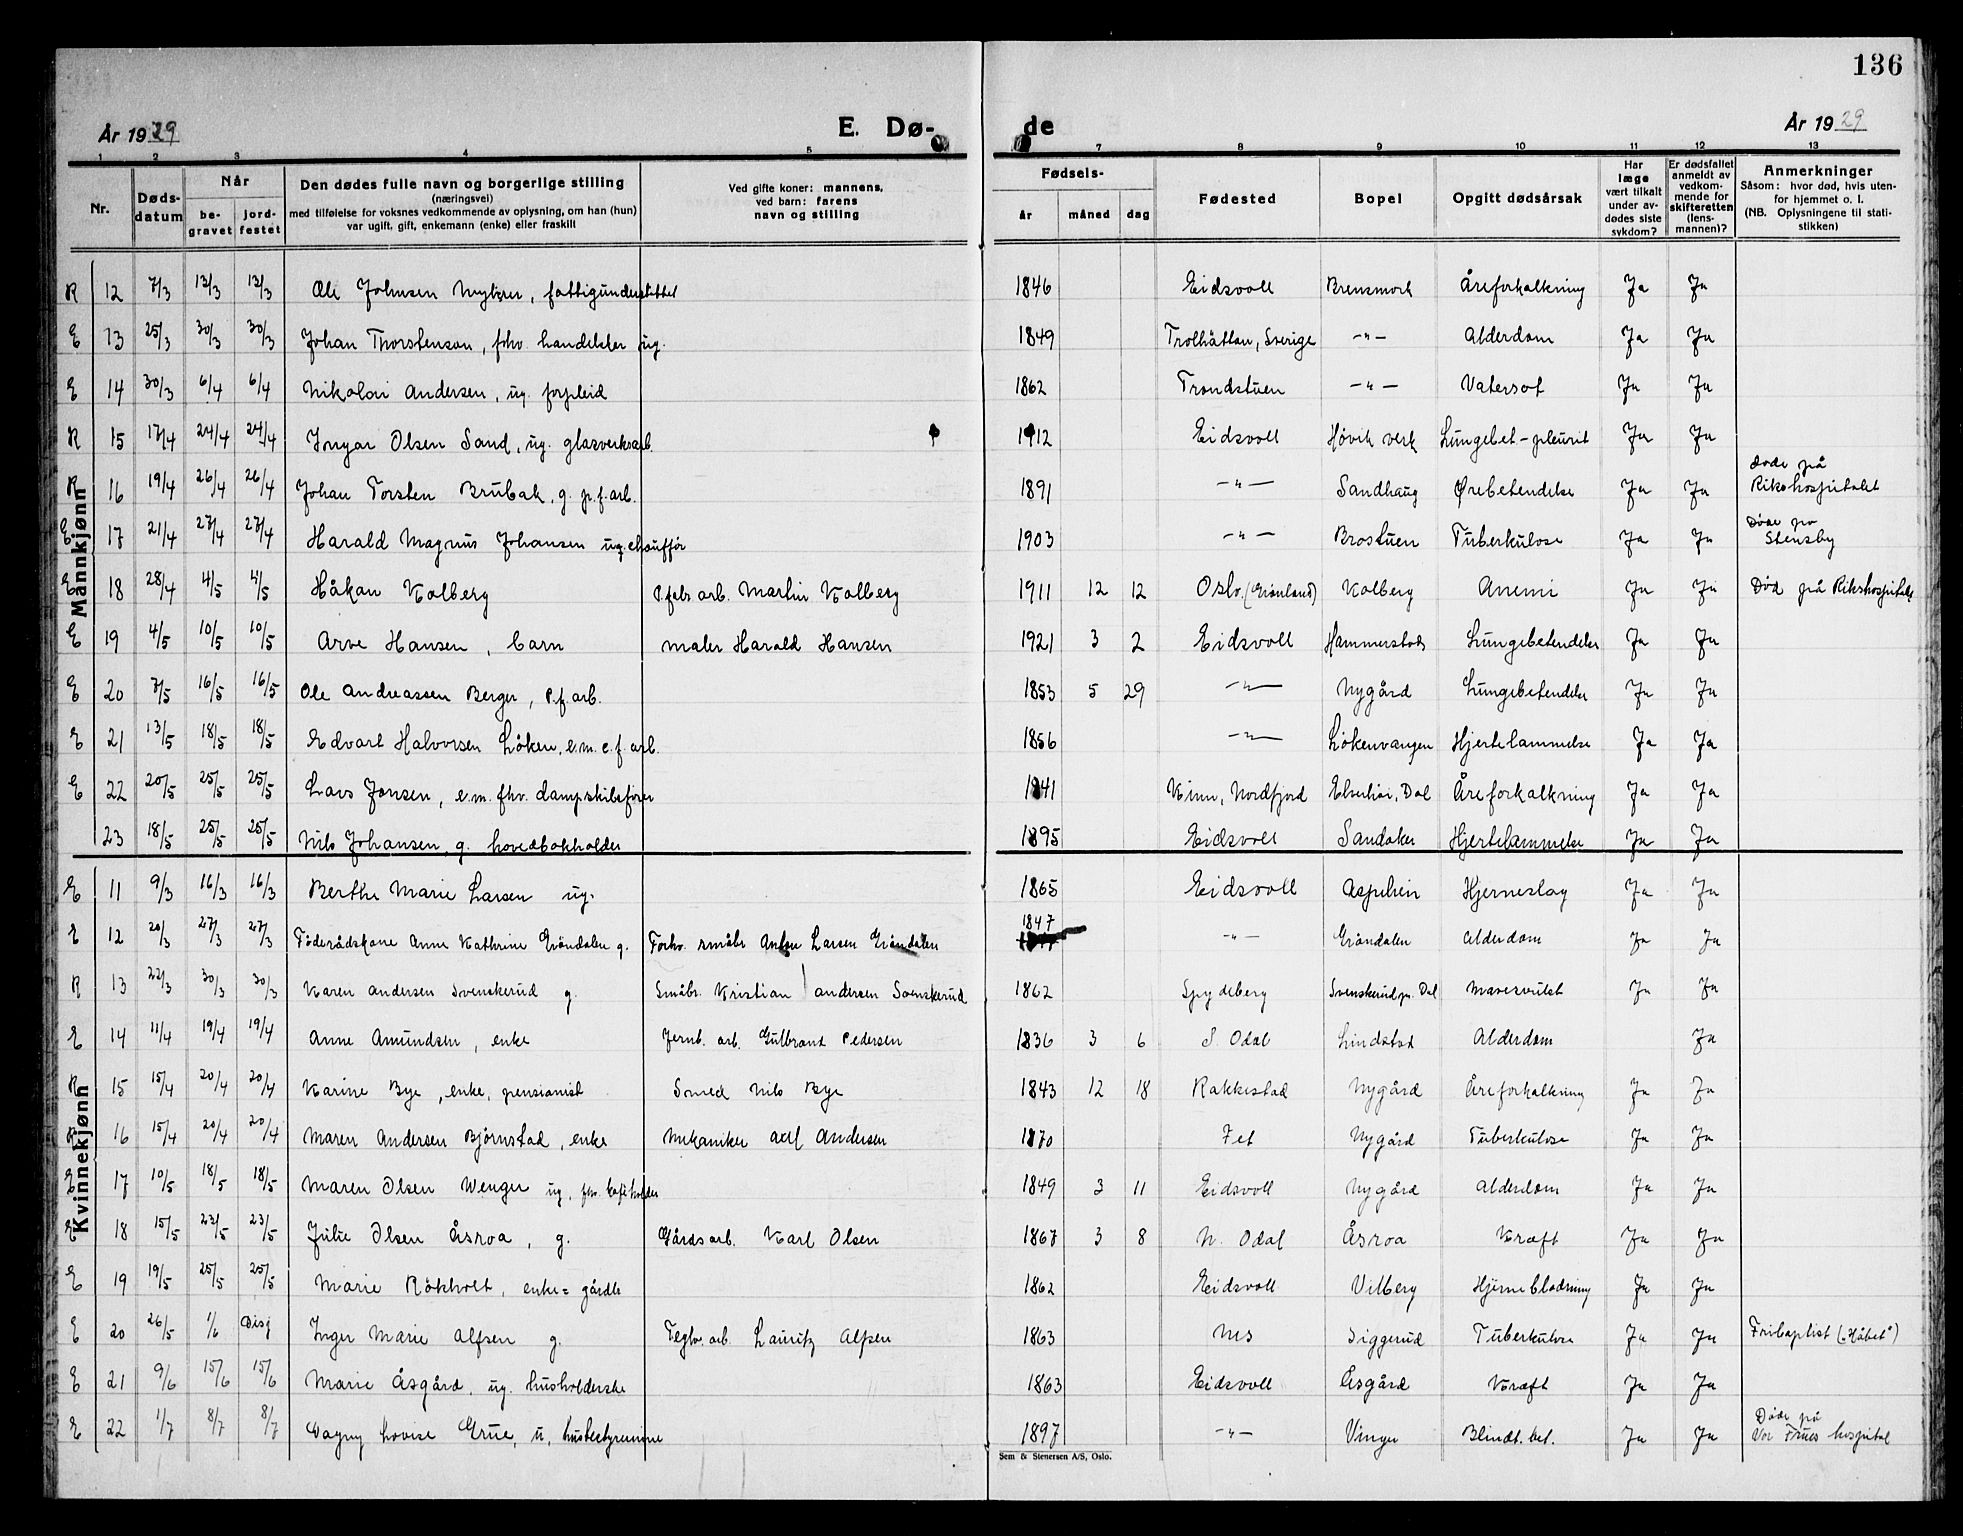 136
År 1929 E. Dø- de År 1929
1 2 3 4 5 7 8 9 10 11 12 13
Nr. Døds-datum Når be-gravet jord-festet Den dødes fulle navn og borgerlige stilling (næringsvei) med tilføielse for voksnes vedkommende av oplysning, om han (hun) var ugift, gift, enkemann (enke) eller fraskilt Ved gifte koner: mannens, ved barn: farens navn og stilling Fødsels- år måned dag Fødested Bopel Opgitt dødsårsak Har læge vært tilkalt under av-dødes siste sykdom? Er dødsfallet anmeldt av vedkom-mende for skifteretten (lens-mannen)? Anmerkninger Såsom: hvor død, hvis uten-for hjemmet o. l. (NB. Oplysningene til stati-stikken)
Mannkjønn
R 12 7/3 13/3 13/3 Ole Johnsen Nyborer, fattigunderstøttet 1846 Eidsvoll Brensmork Åreforkalkning Ja Ja
E 13 25/3 30/3 30/3 Johan Thorstenson, fhv. handelsbr ug. 1849 Trolhättan, Sverige -"- Alderdom Ja Ja
E 14 30/3 6/4 6/4 Nikolai Andersen, ug. forpleid 1862 Trondstuen -"- Vatersot Ja Ja
R 15 17/4 24/4 24/4 Ingar Olsen Sand, ug. glasverksarb. 1912 Eidsvoll Høvik verk Lungebet-pleurit Ja Ja
R 16 19/4 26/4 26/4 Johan Torsten Brubak, g. p.f.arb. 1891 -"- Sandhaug Ørebetendelse Ja Ja døde på Rikshospitalet
E 17 21/4 27/4 27/4 Harald Magnus Johansen ug. chauffør 1903 -"- Brostuen Tuberkulose Ja Ja Døde på Stensby
E 18 28/4 4/5 4/5 Håkan Kolberg P.fabr.arb. Martin Kolberg 1911 12 12 Oslo. (Grønland) Kolberg Anemi Ja Ja Død på Rikshospitalet
E 19 4/5 10/5 10/5 Arve Hansen, barn maler Harald Hansen 1921 3 2 Eidsvoll Hammerstad Lungebetendelse Ja Ja
E 20 7/5 16/5 16/5 Ole Andreassen Berger, P.f. arb. 1853 5 29 -"- Nygård Lungebetendelse Ja Ja
E 21 13/5 18/5 18/5 Edvart Halvorsen Løken, e.m. c.f. arb. 1856 -"- Løkenvangen Hjertelammelse Ja Ja
E 22 20/5 25/5 25/5 Lars Jensen, e.m. fhv. dampskibsfører 1841 Kinn, Nordfjord Elverhøi, Dal Åreforkalkning Ja Ja
23 18/5 25/5 25/5 Nils Johansen, g. hovedbokholder 1895 Eidsvoll Sandaker Hjertelammelse Ja Ja
Kvinnekjønn
E 11 9/3 16/3 16/3 Berthe Marie Larsen ug. 1865 Eidsvoll Aspeheim Hjerneslag Ja Ja
E 12 20/3 27/3 27/3 Føderådskone Anne Kathrine Grøndalen g. Forhv. småbr. Anton Larsen Grøndalen 1847 -"- Grøndalen Alderdom Ja Ja
R 13 22/3 30/3 30/3 Karen Andersen Svenskerud g. Småbr. Kristian Andersen Svenskerud 1862 Spydeberg Svenskerud pr. Dal Mavesvulst Ja Ja
E 14 11/4 19/4 19/4 Anne Amundsen, enke Jernb. arb. Gulbrand Pedersen 1836 3 6 S. Odal Lindstad Alderdom Ja
R 15 15/4 20/4 20/4 Karine Bye, enke, pensionist Smed Nils Bye 1843 12 18 Rakkestad Nygård Åreforkalkning Ja Ja
R 16 15/4 20/4 20/4 Maren Andersen Bjørnstad, enke Mekaniker Axel Andersen 1870 Fet Nygård Tuberkulose Ja Ja
E 17 10/5 18/5 18/5 Maren Olsen Wenger ug, fhv. kafeholder 1849 3 11 Eidsvoll Nygård Alderdom Ja Ja
E 18 15/5 23/5 23/5 Julie Olsen Åsroa, g. Gårdsarb. Karl Olsen 1867 3 8 N. Odal Åsroa Kræft Ja Ja
E 19 19/5 25/5 25/5 Marie Røkholt, enke= gårdbr 1862 Eidsvoll Vilberg Hjerneblødning Ja Ja
E 20 26/5 1/6 Disp Inger Marie Alfsen g. Teglv. arb. Lauritz Alfsen 1863 Nes Siggerud Tuberkulose Ja Ja Fribaptist ("Håbet")
E 21 9/6 15/6 15/6 Marie Åsgård, ug. husholderske 1863 Eidsvoll Åsgård Kræft Ja Ja
E 22 1/7 8/7 8/7 Dagny Lovise Grue, u, husbestyrerinne 1897 -"- Vinger Blindt. bet. Ja Ja Døde på Vor Frues hospital
Sem & Stenersen A/S, Oslo.